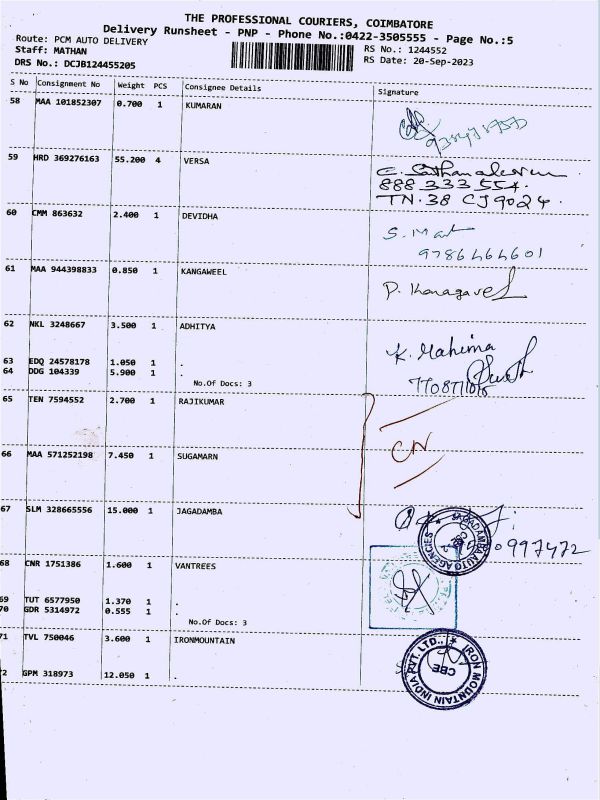 THE PROFESSIONAL COURIERS, COIMBATORE
Delivery Runsheet - PNP - Phone No.:0422-3505555 - Page No.:5
Route: PCM AUTO DELIVERY
RS No.: 1244552
Staff: MATHAN
RS Date: 20-Sep-2023
DRS No.: DCJB124455205
S No Consignment No Weight PCS Consignee Details Signature
58 MAA 101852307 0.700 1 KUMARAN
59 HRD 369276163 55.200 4 VERSA
888 333 554.
TN.38 CJ9024.
60 CMM 863632 2.400 1 DEVIDHA
S. Mat
9786464601
61 MAA 944398833 0.850 1 KANGAWEEL
P. Kanagavel
62 NKL 3248667 3.500 1 ADHITYA
K. Mahima
63 EDQ 24578178 1.050 1 .
64 DDG 104339 5.900 1 .
No.Of Docs: 3
65 TEN 7594552 2.700 1 RAJIKUMAR
CN
66 MAA 571252198 7.450 1 SUGAMARN
67 SLM 328665556 15.000 1 JAGADAMBA
JAGADAMBA AUTO AGENCIES
997472
68 CNR 1751386 1.600 1 VANTREES
69 TUT 6577950 1.370 1 .
70 GDR 5314972 0.555 1 .
No.Of Docs: 3
71 TVL 750046 3.600 1 IRONMOUNTAIN
IRON MOUNTAIN INDIA PVT. LTD.,
CBE
72 GPM 318973 12.050 1 .